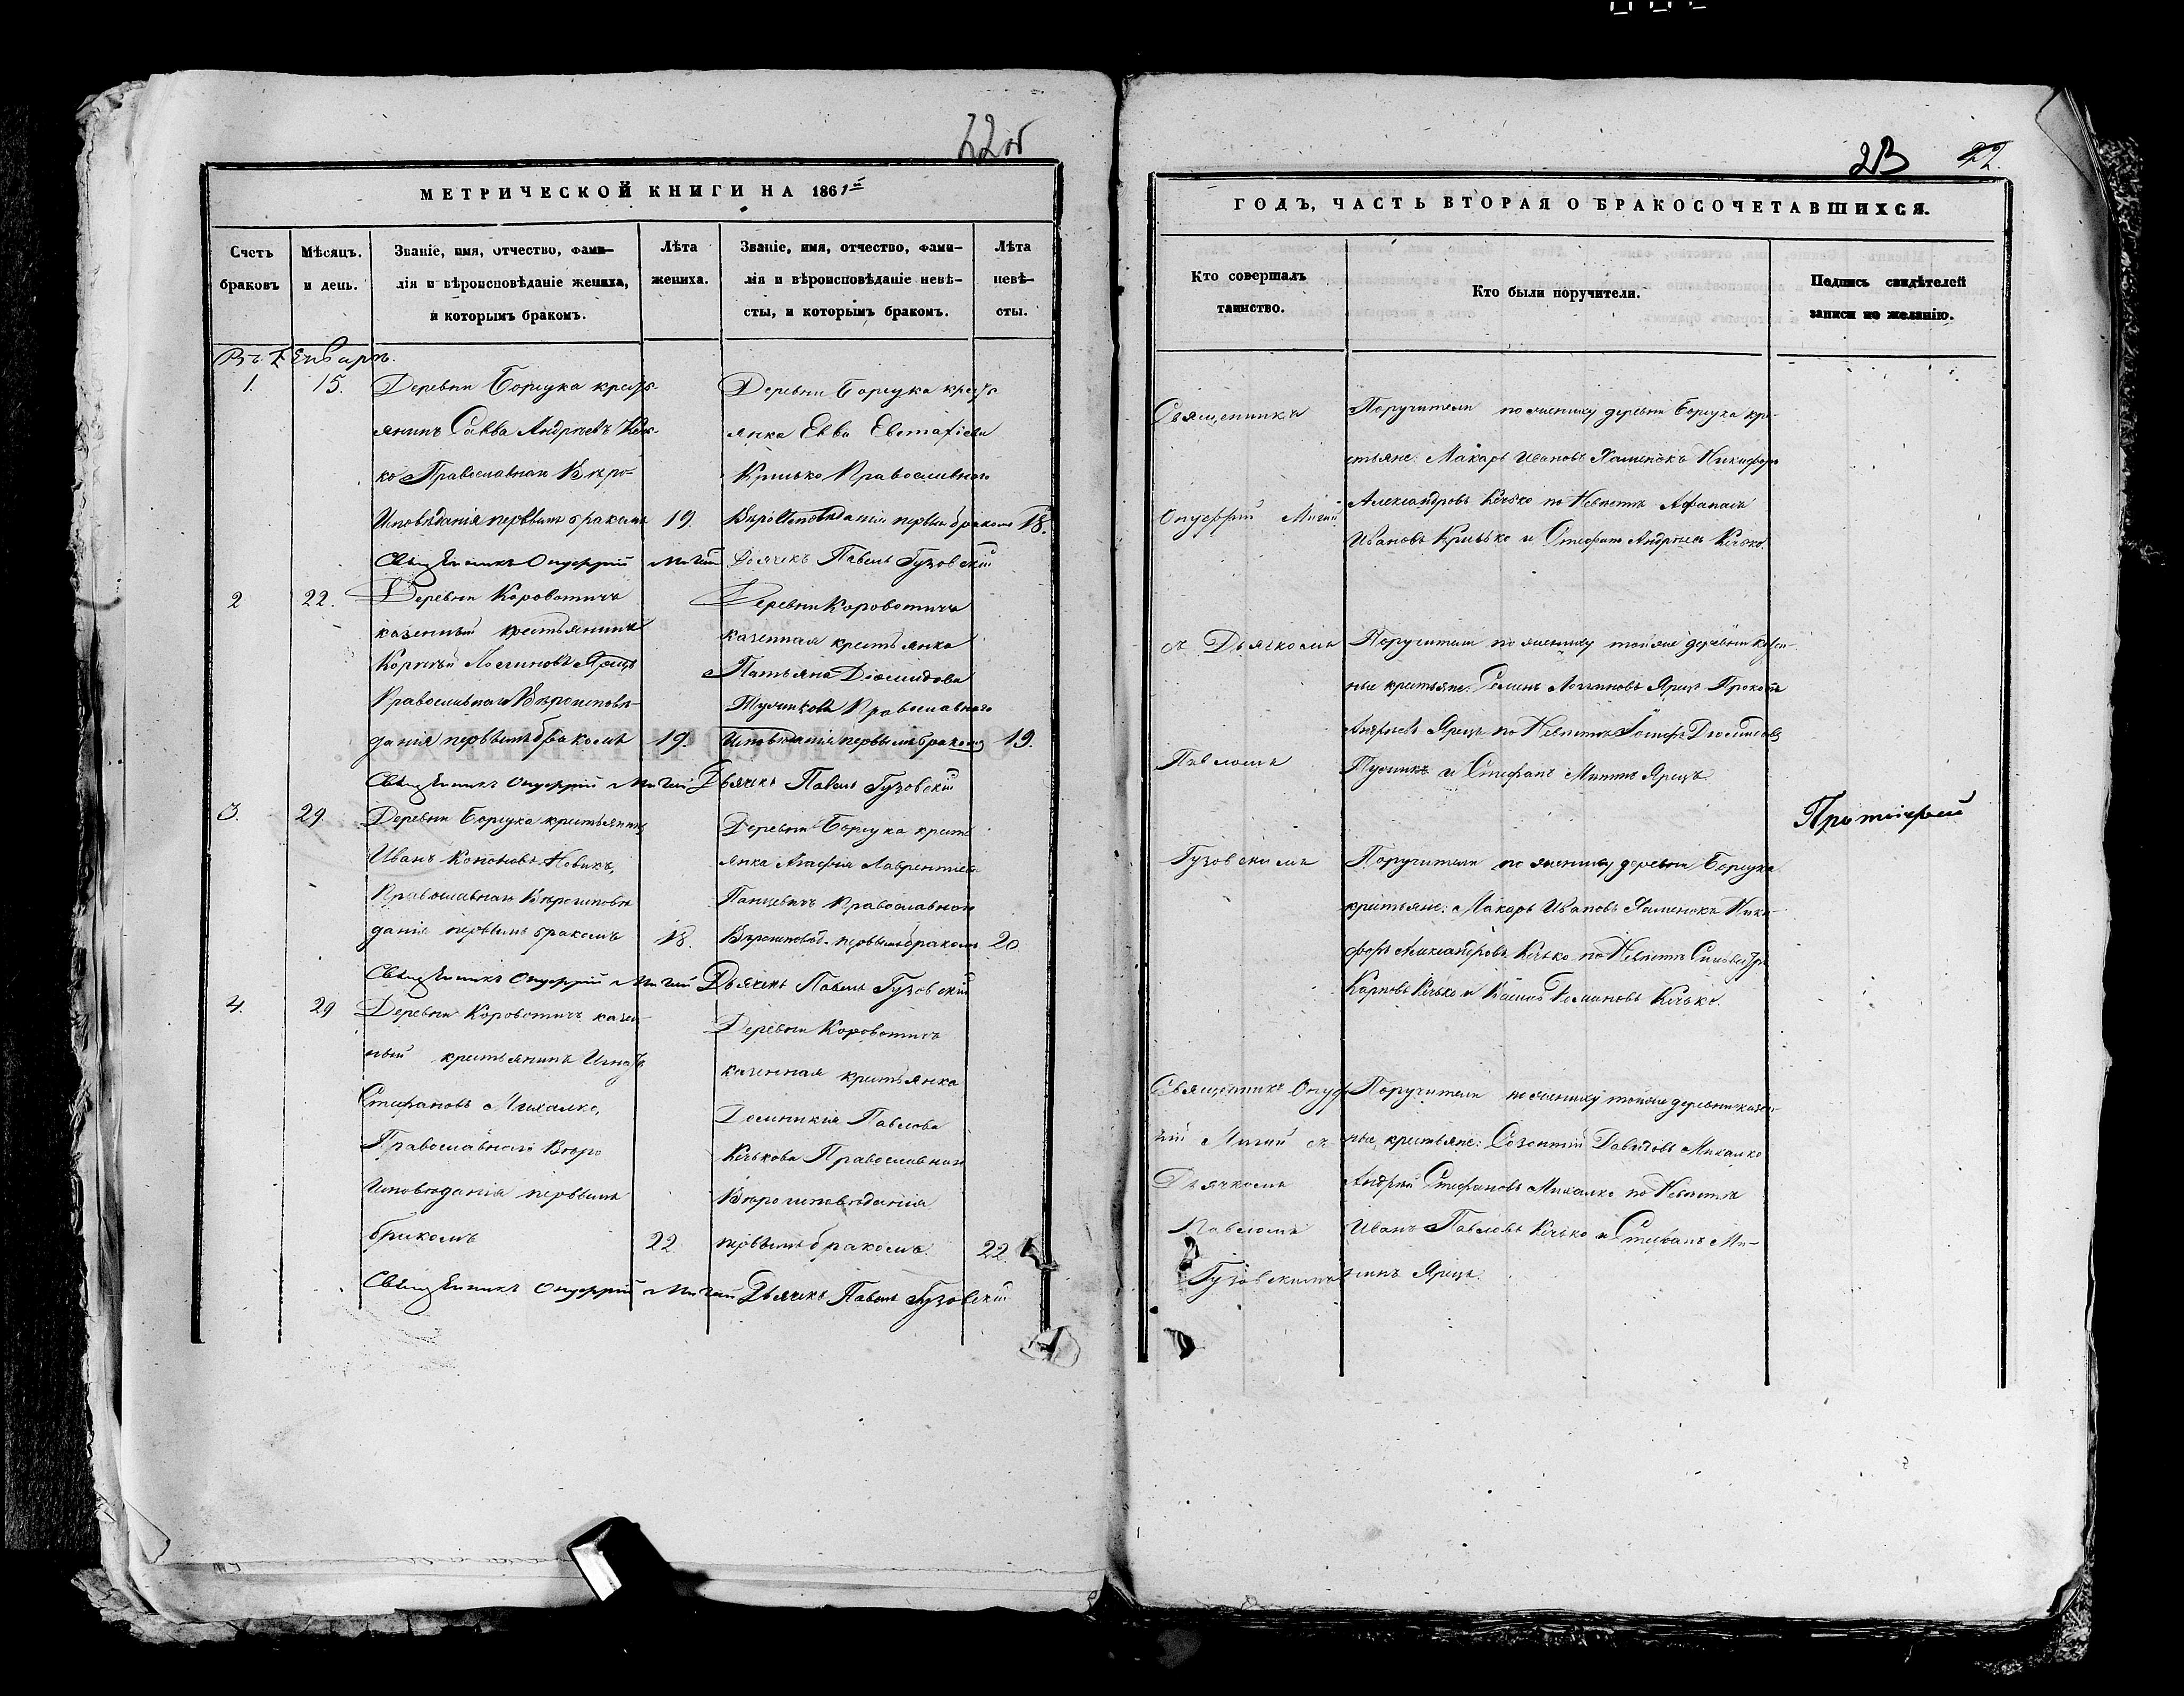 22об
МЕТРИЧЕСКОЙ КНИГИ НА 1861й
Счетъ браковъ
Мѣсяцъ. и день.
Званіе, имя, отчество, фами-
лія и вѣроисповѣданіе жениха,
и которымъ бракомъ.
Лѣта жениха.
Званіе, имя, отчество, фами-
лія и вѣроисповѣданіе невѣ-
сты, и которымъ бракомъ.
Лѣта невѣ-
сты.
Въ Январѣ.
1. 15.
Деревни Борщука кресть-
янинъ Савва Андреевъ
ко Православнаго Вѣро-
Исповѣданія первымъ бракомъ 19.
Деревни Борщука кресть
янка Евва Евстафіева
Кривко Православнаго
ВѣроИсповѣданія первымъ бракомъ 18.
Священникъ Онуфрій Мигай Дьячекъ Павелъ Гузовскій
2 22.
Деревни Коробатичъ
казенный крестьянинъ
Корнилій Логиновъ Ярецъ
Православнаго Вѣроисповѣ-
данія первымъ бракомъ 19.
Деревни Коробатичъ
казенная крестьянка
Татьяна Діомидова
Православнаго
Исповѣданія первымъ бракомъ 19.
Священникъ Онуфрій Мигай Дьячекъ Павелъ Гузовскій
3. 29
Деревни Борщука крестьянинъ
Иванъ Кононовъ Новикъ,
Православнаго Вѣроисповѣ
данія первымъ бракомъ 18.
Деревни Борщука кресть
янка Агафія Лаврентіева
Панцевичъ Православнаго
Вѣроисповѣд. первымъ бракомъ 20
Священникъ Онуфрій Мигай Дьячекъ Павелъ Гузовскій
4. 29
Деревни Коробатичъ казен
ный крестьянинъ Игнатъ
Стефановъ Михалко,
Православнаго Вѣро
Исповѣданія первымъ
бракомъ 22
Деревни Коробатичъ
казенная крестьянка
Домникія Павлова
Кечькова Православнаго
Вѣроисповѣданія
первымъ бракомъ. 22
Священникъ Онуфрій Мигай Дьячекъ Павелъ Гузовскій
23 22.
ГОДЪ, ЧАСТЬ ВТОРАЯ О БРАКОСОЧЕТАВШИХСЯ.
Кто совершалъ
таинство.
Кто были поручители.
Подпись свидѣтелей
записи по желанію.
Священникъ
Онуфрій Мигай
съ Дьячкомъ
Павломъ
Гузовскимъ
Поручители по жениху деревни Борщука кре-
стьяне: Макаръ Ивановъ Никифоръ
Александровъ Кечько по Невѣстѣ Афанасій
Ивановъ Кривко и Стефанъ Андреевъ Кечько.
Поручители по жениху той же деревни казен-
ные крестьяне: Семенъ Логиновъ Ярецъ Прокопъ
Андреевъ Ярецъ по Невѣстѣ Іосифъ Діомидовъ
и Стефанъ Мининъ Ярецъ.
Протоіерей
Поручители по жениху деревни Борщука
крестьяне: Макаръ Ивановъ Ники-
форъ Александровъ Кечько по Невѣстѣ
Карповъ Кечько и Романовъ Кечько.
Священникъ Онуф
рій Мигай съ
Дьячкомъ
Павломъ
Гузовскимъ
Поручители по жениху той же деревни казен-
ные крестьяне: Созонтій Давыдовъ Михалко
Андрей Стефановъ Михалко по Невѣстѣ
Иванъ Павловъ Кечько и Стефанъ Ми-
нинъ Ярецъ.